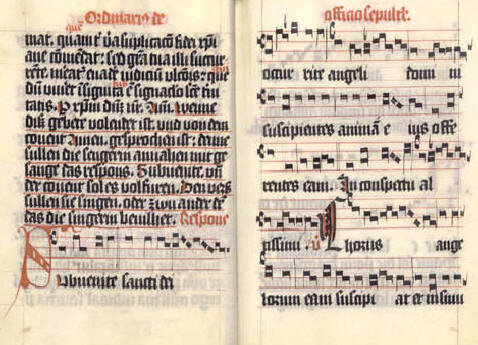 Ordinarius de
mat. quam tibi v̄a suplicatio fidei xp̄i
ane cōmendat: sed gr̄a tua illi succur
rēte. meat̉ euadē iudiciū vltōis: que
dū viuer̄ īsignita ē signac̄lo sc̄e tri
tatis. P xp̄m dn̄m nr̄m. Am̄. Swenne
diz gebete volendet ist. vnd von dem
couent Amen. gesprochen ist: denne
sullen die sengerin anuahen mit ge
sange das respons. Subuenite. vn̄
der couent sol es volfuren. Den vers
sullen sie singen. oder ande
das die sengerin beuilhet. Respons
Subuenite sancti dei
officio sepultr̄e.
occurrite angeli domi ni
suscipientes animā e ius offe
rentes eam. In conspectu al
tissimi. v̄ Chorus ange
lorum eam suscipi at et in sinu